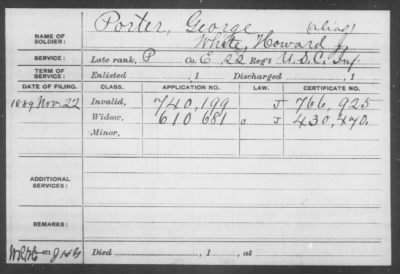 Porter, George (alias)
NAME OF SOLDIER: White, Howard J.
SERVICE: Late rank, P Co. E, 22 Reg't U.S.C. Inf.
TERM OF SERVICE: Enlisted , 1 Discharged , 1
DATE OF FILING. CLASS. APPLICATION NO. LAW. CERTIFICATE NO.
1889 Nov. 22 Invalid, 740,199 J 766,925
Widow, 610 681 J 430,470.
Minor,
ADDITIONAL SERVICES:
REMARKS:
Died , 1 , at